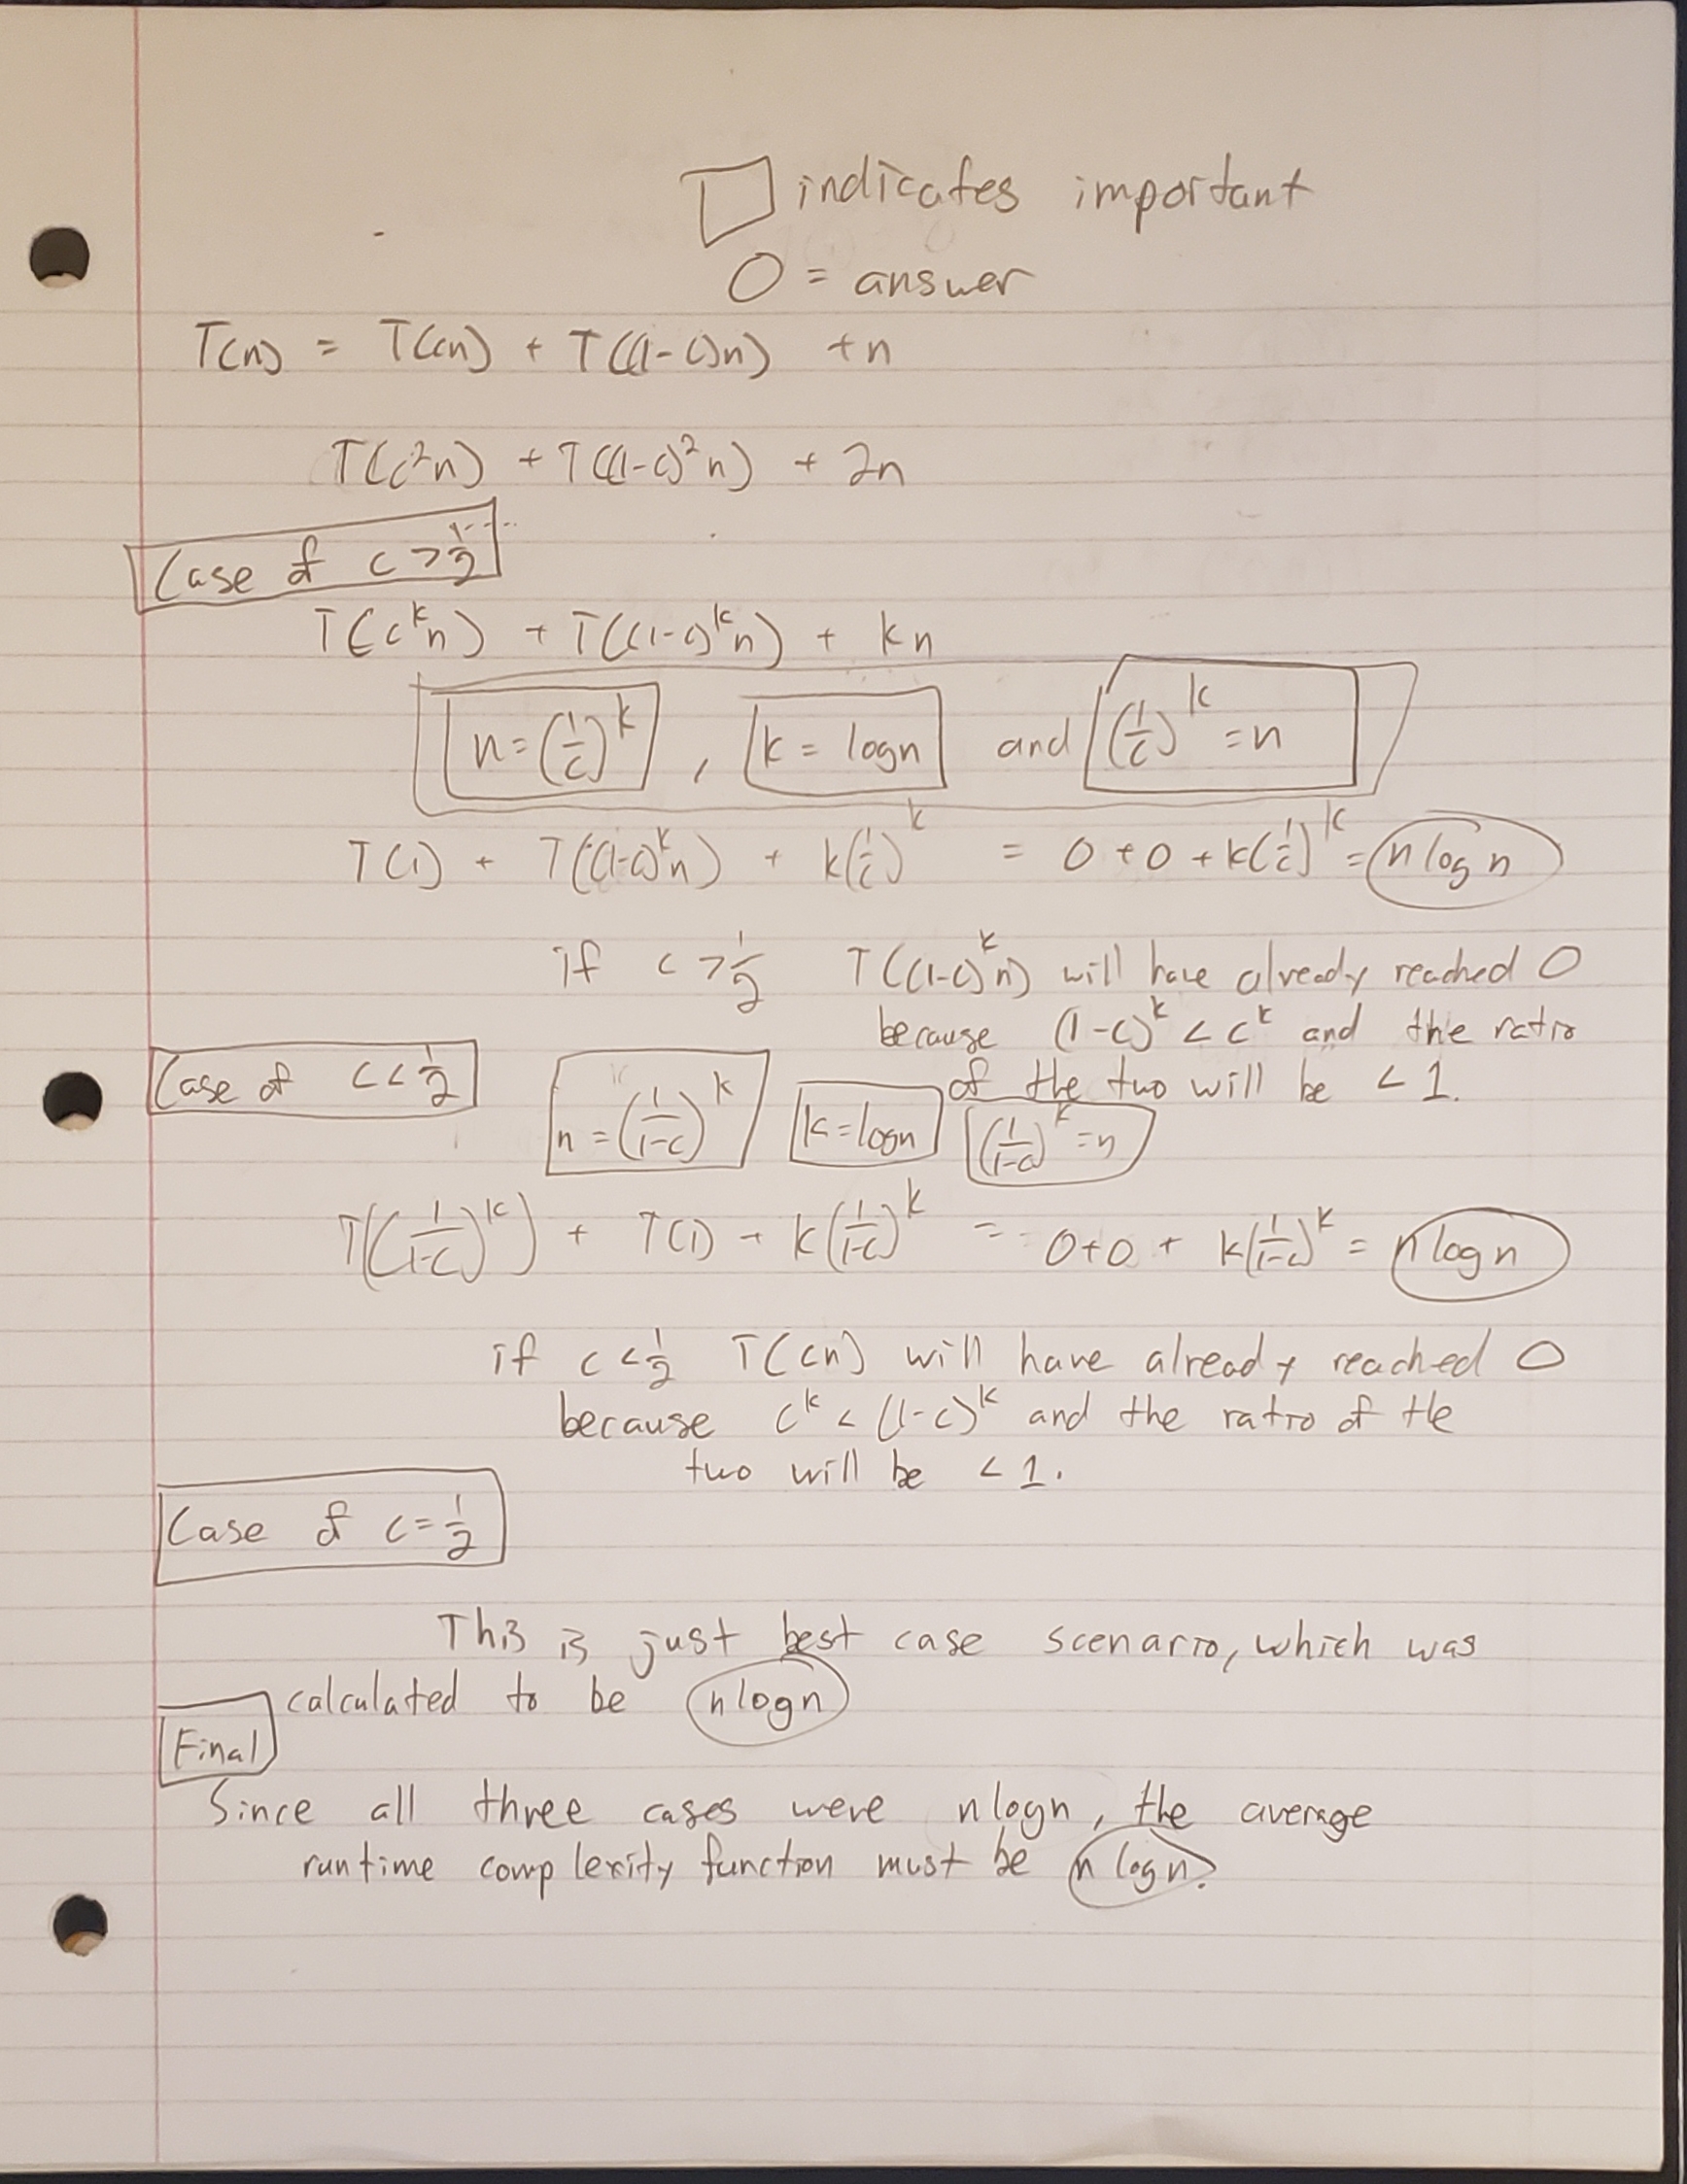 □ indicates important
O = answer
T(n) = T(cn) + T((1-c)n) + n
T(c²n) + T((1-c)²n) + 2n
Case of c > 1/2
T(c^k n) + T((1-c)^k n) + kn
n = (1/c)^k , k = logn and (1/c)^k = n
T(1) + T((1-c)^k n) + k(1/c)^k = 0 + 0 + k(1/c)^k = n log n
if c > 1/2 T((1-c)^k n) will have already reached 0
because (1-c)^k < c^k and the ratio
of the two will be < 1.
Case of c < 1/2 n = (1/1-c)^k k = logn (1/1-c)^k = n
T((1/1-c)^k) + T(1) + k(1/1-c)^k = 0 + 0 + k(1/1-c)^k = n log n
if c < 1/2 T(cn) will have already reached 0
because c^k < (1-c)^k and the ratio of the
two will be < 1.
Case of c = 1/2
This is just best case scenario, which was
calculated to be n log n
Final
Since all three cases were n log n, the average
runtime complexity function must be n log n.